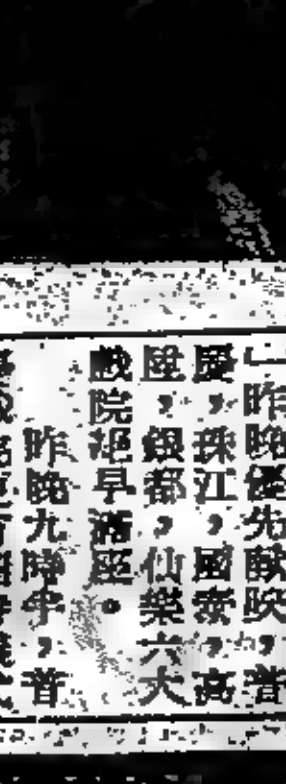 昨晚優先獻映，普
慶，珠江，國泰，高
陞，銀都，仙樂六大
戲院提早滿座。
昨晚九時半，首